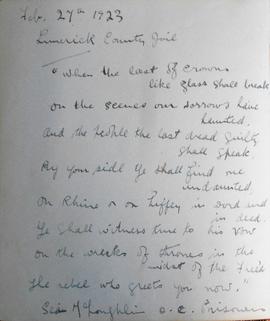 Feb. 27th 1923
Limerick County Jail
"When the last of crowns
like glass shall break
on the scenes our sorrows have
haunted.
And the People the last dead guilty
shall speak.
By your side ye shall find one
undaunted.
On Rhine or on Liffey in word and
in deed.
Ye shall witness true to his vow
on the wrecks of thrones in the
midst of the freed
The rebel who greets you now."
Seán McLoughlin O.C. Prisoners